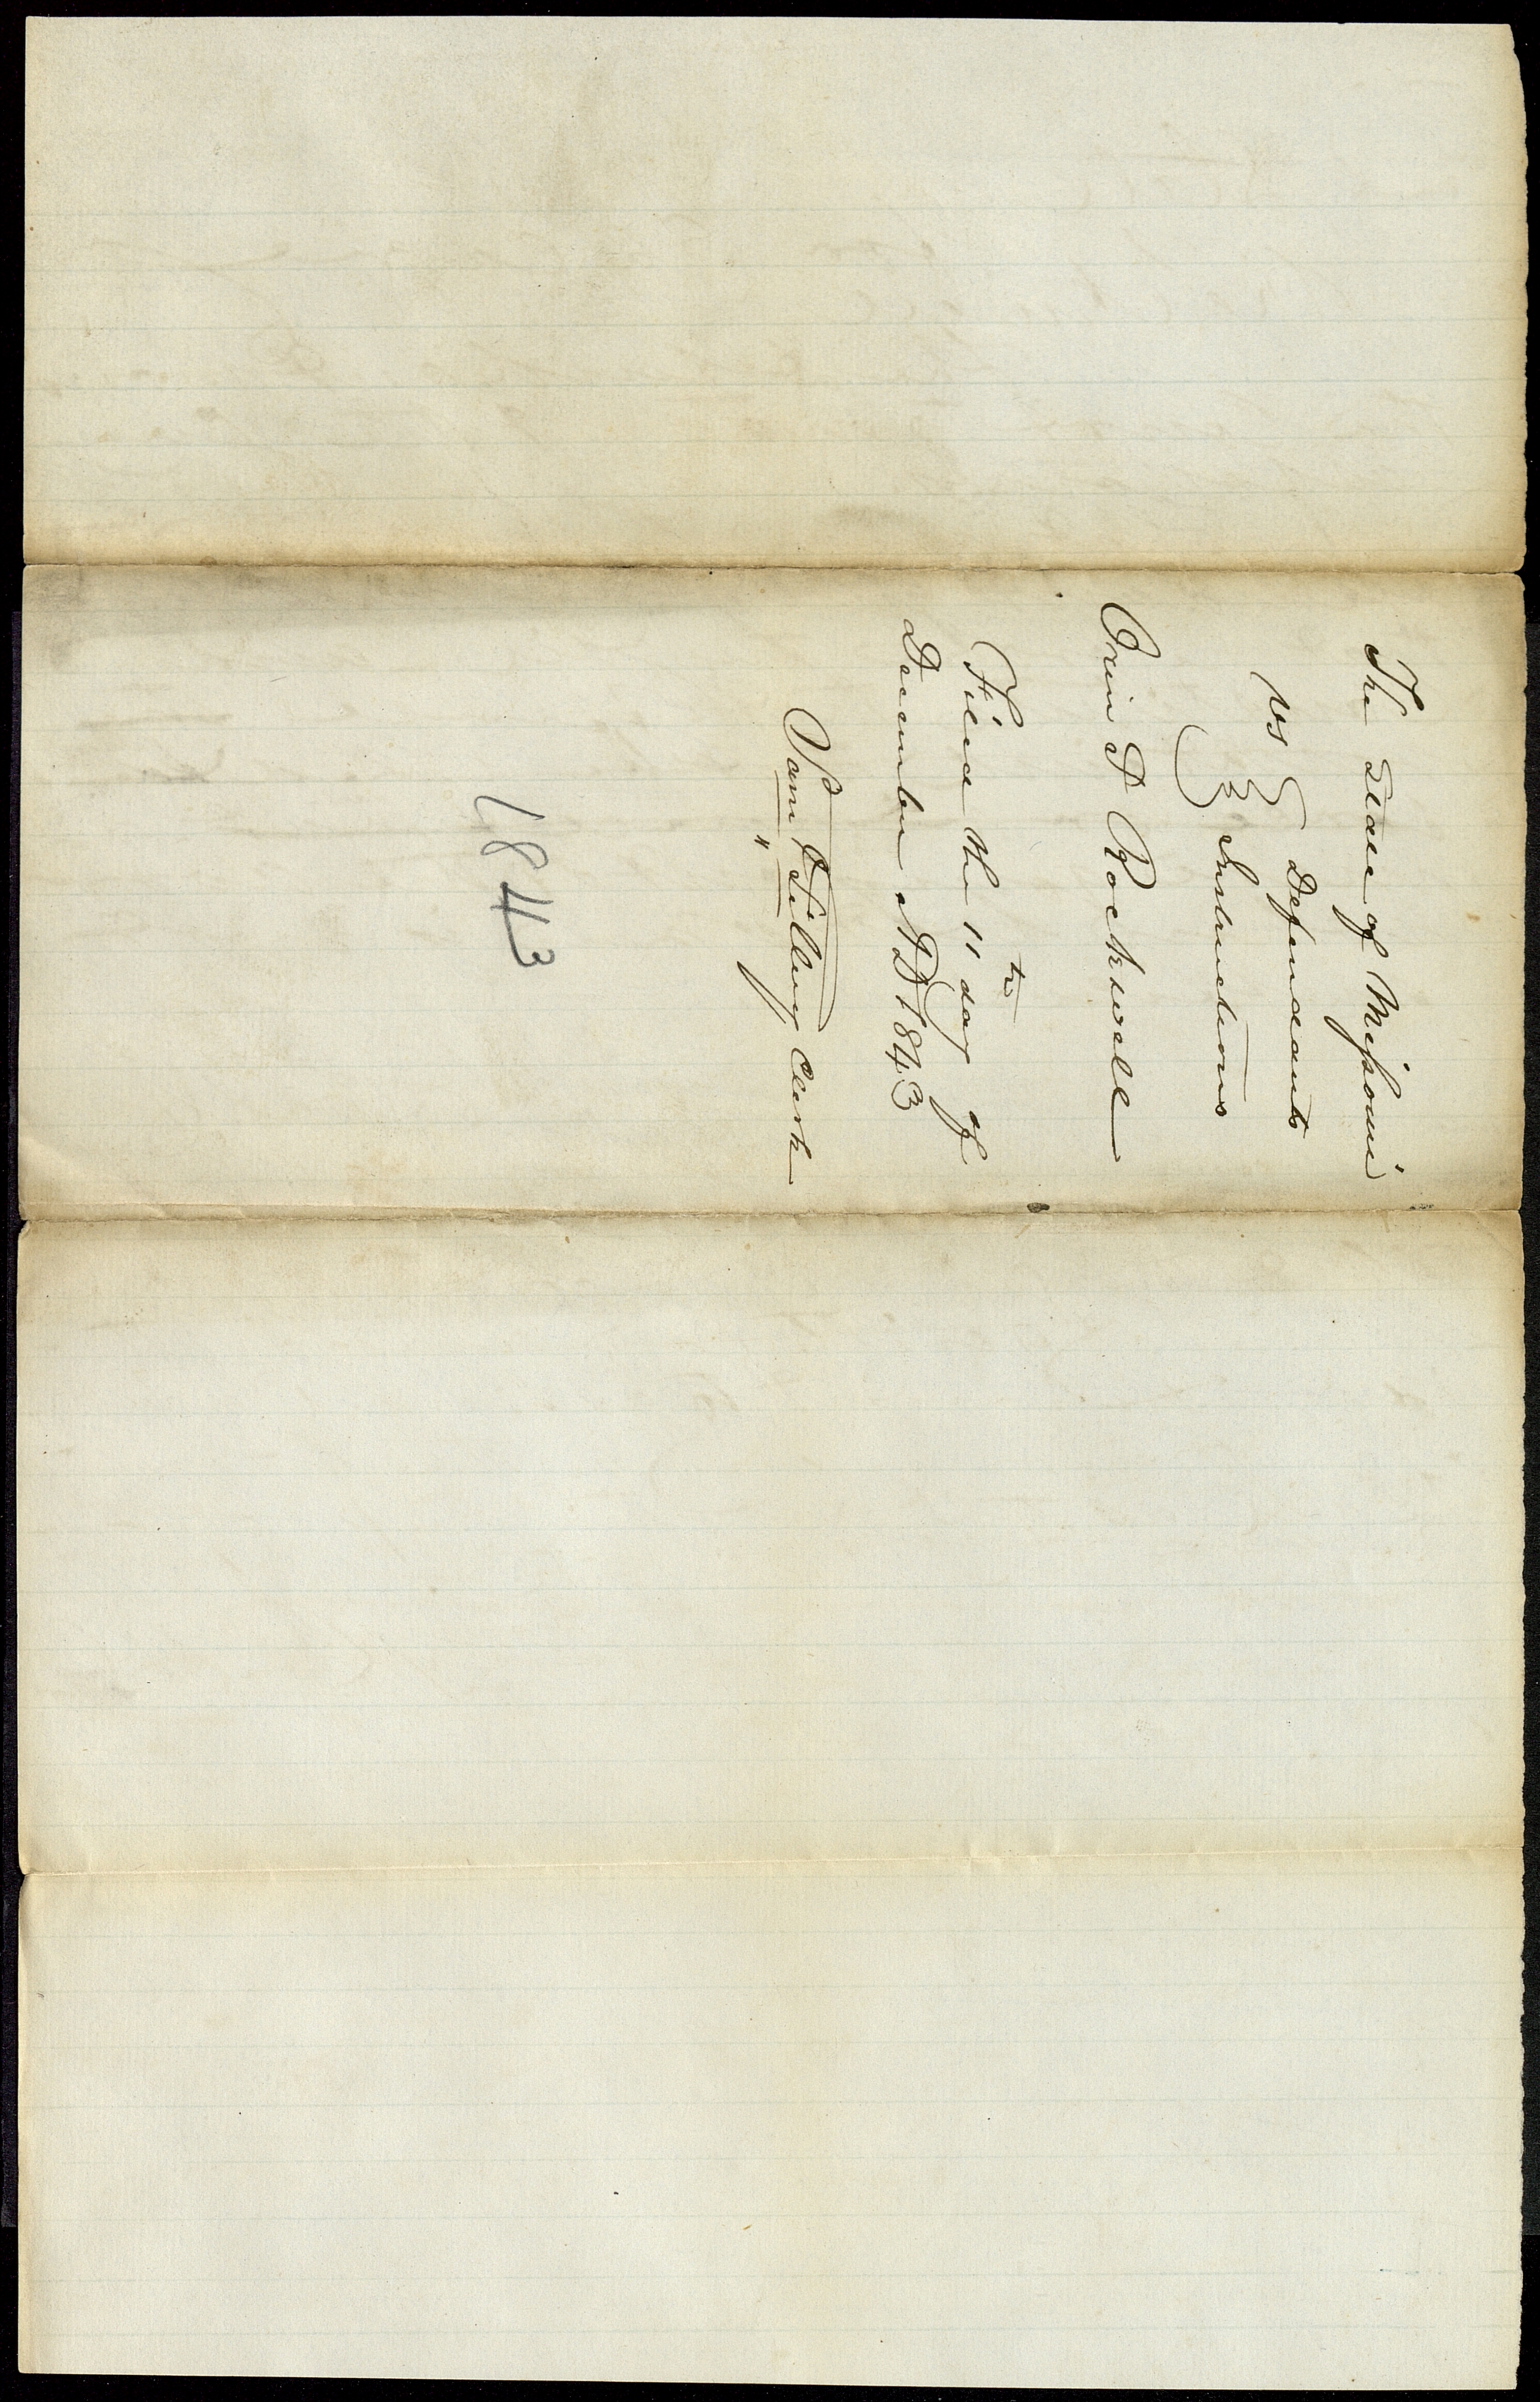 The State of Missouri
vs } Defendants
} Instructions
Orin P Rockwell
Filed the 11th day of
December AD 1843
Sam Tillery Clerk
1843